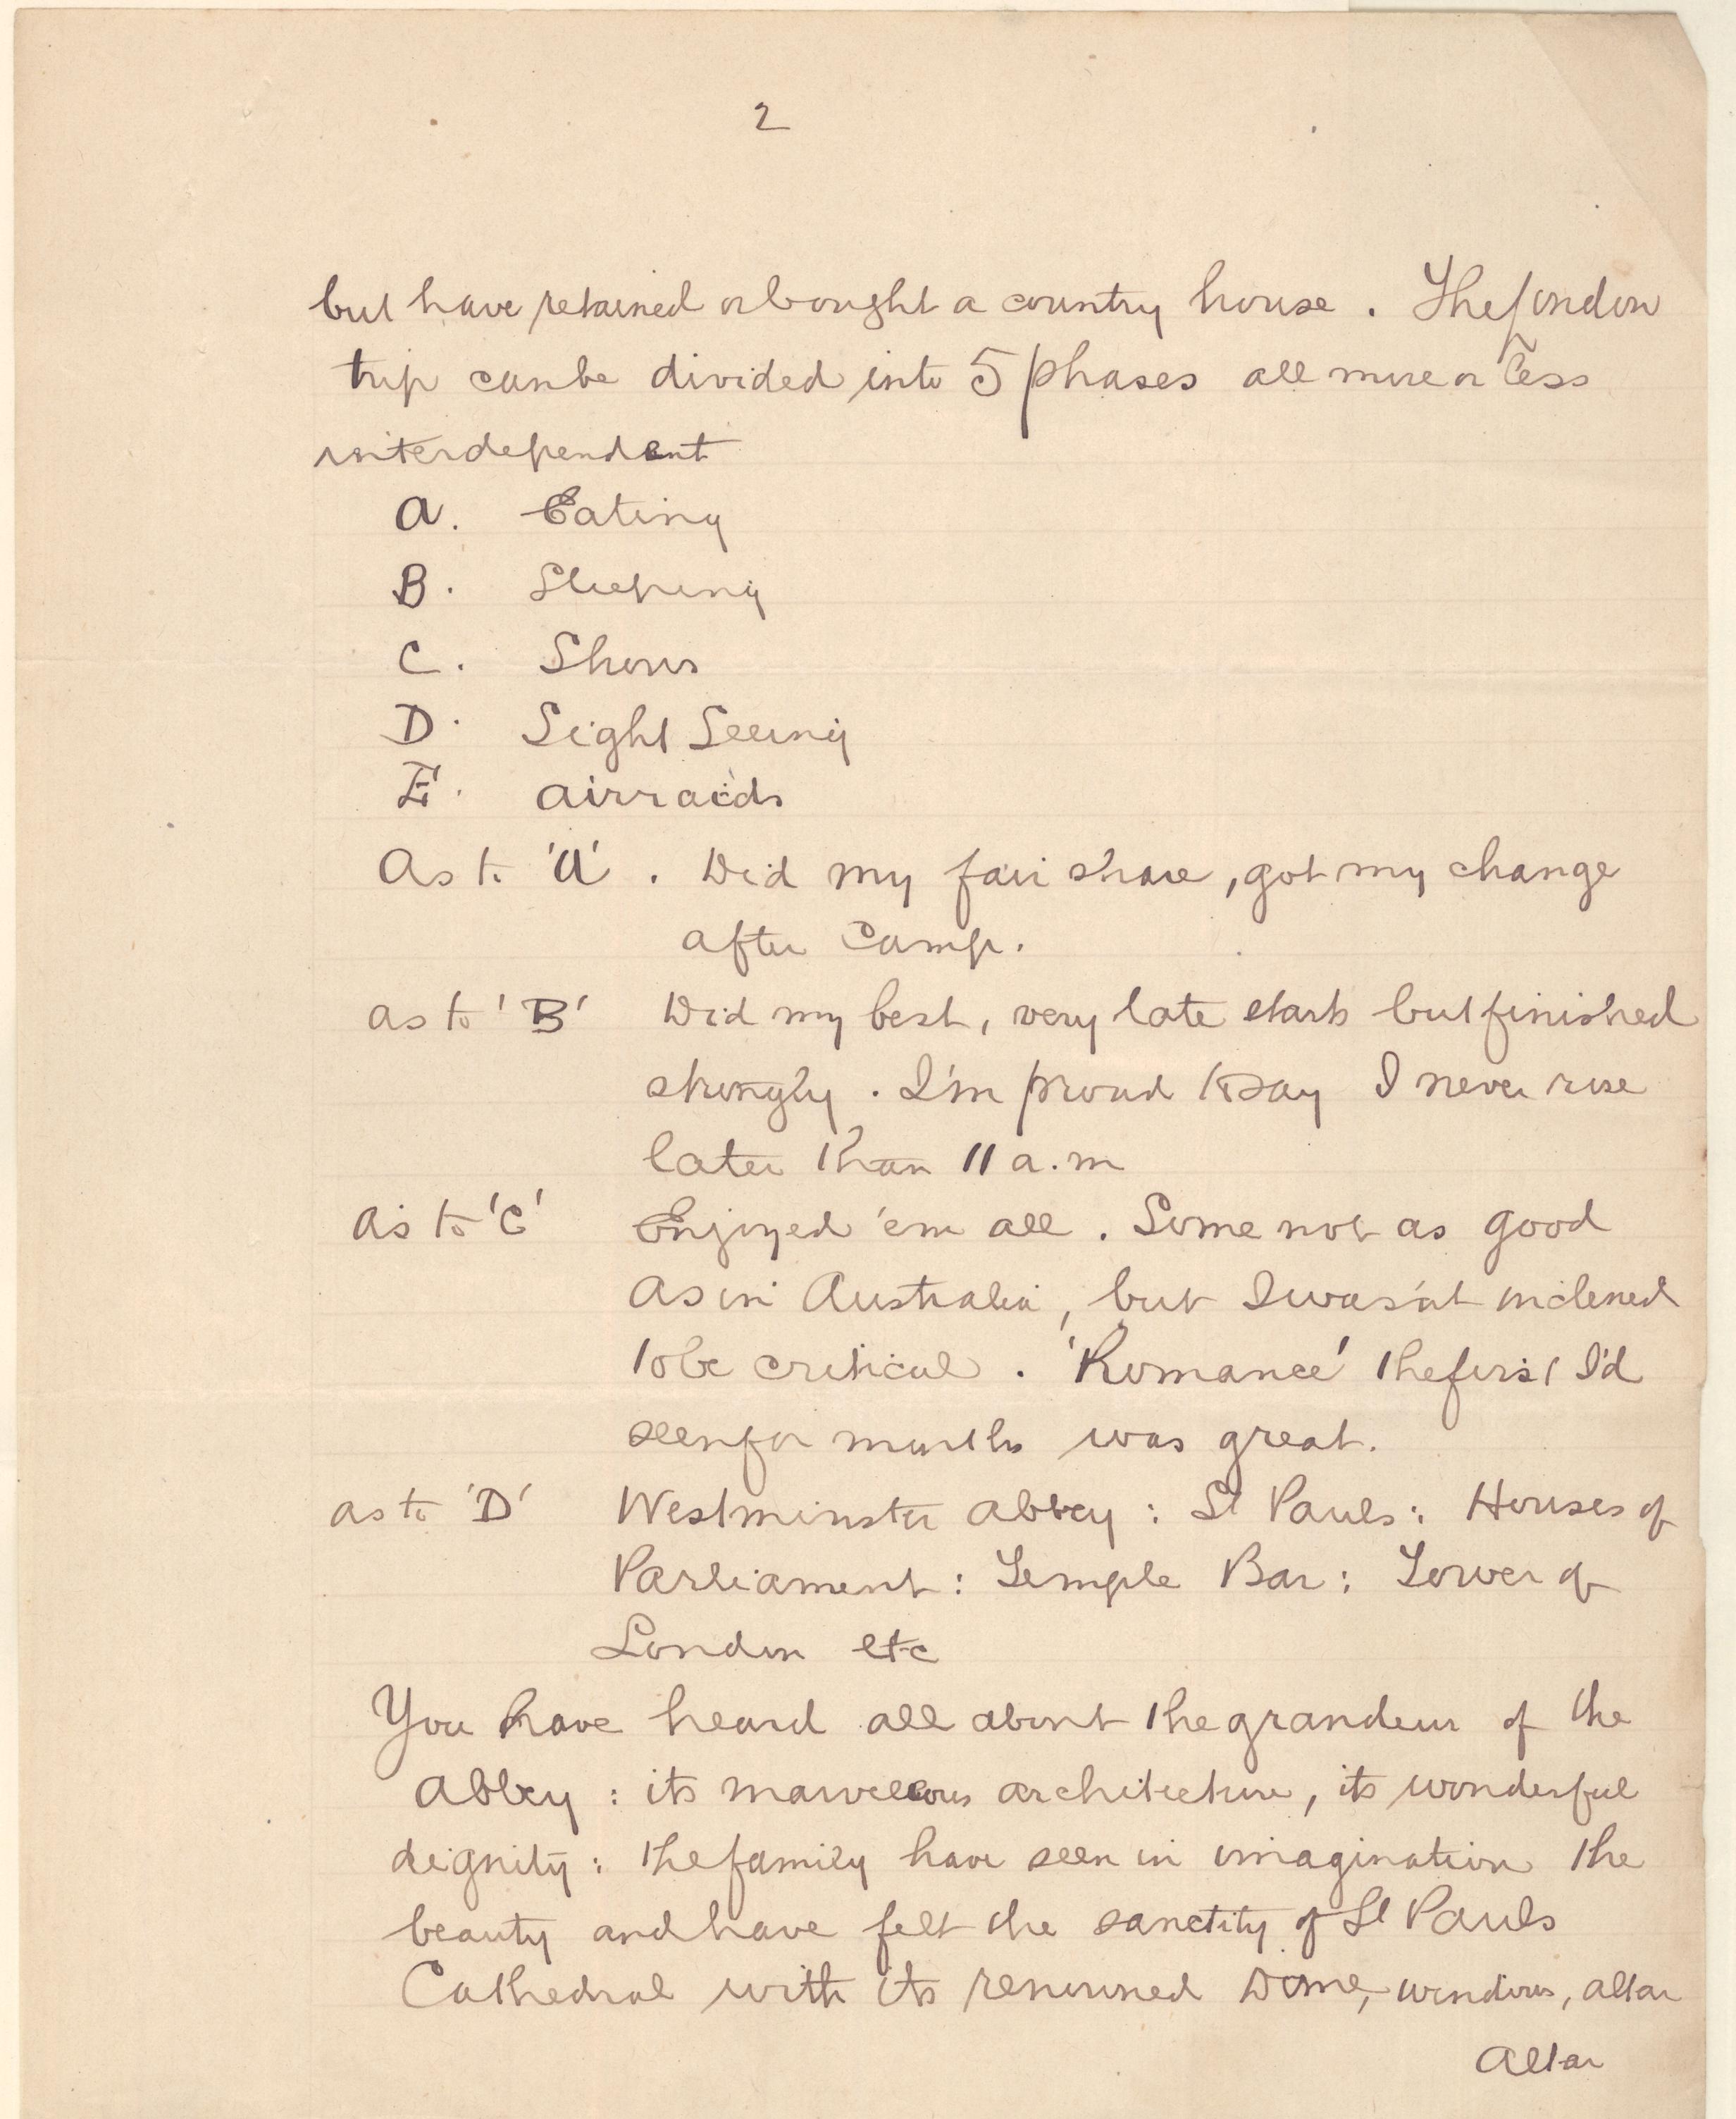 2
but have retained or bought a country house. The London
trip can be divided into 5 phases all more or less
interdependent
A. Eating
B. Sleeping
C. Shows
D. Sight Seeing
E. Air raids
As to 'A'. Did my fair share, got my change
after camp.
As to 'B' Did my best, very late starts but finished
strongly. I'm proud to say I never rose
later than 11 a.m
As to 'C' Enjoyed 'em all. Some not as good
as in Australia, but I was'nt inclined
to be critical. 'Romance' the first I'd
seen for months was great.
As to 'D' Westminster Abbey: St Pauls: Houses of
Parliament: Temple Bar: Tower of
London etc
You have heard all about the grandeur of the
Abbey: its marvellous architecture, its wonderful
dignity: the family have seen in imagination the
beauty and have felt the sanctity of St Pauls
Cathedral with its renowned Dome, windows, altar
Altar